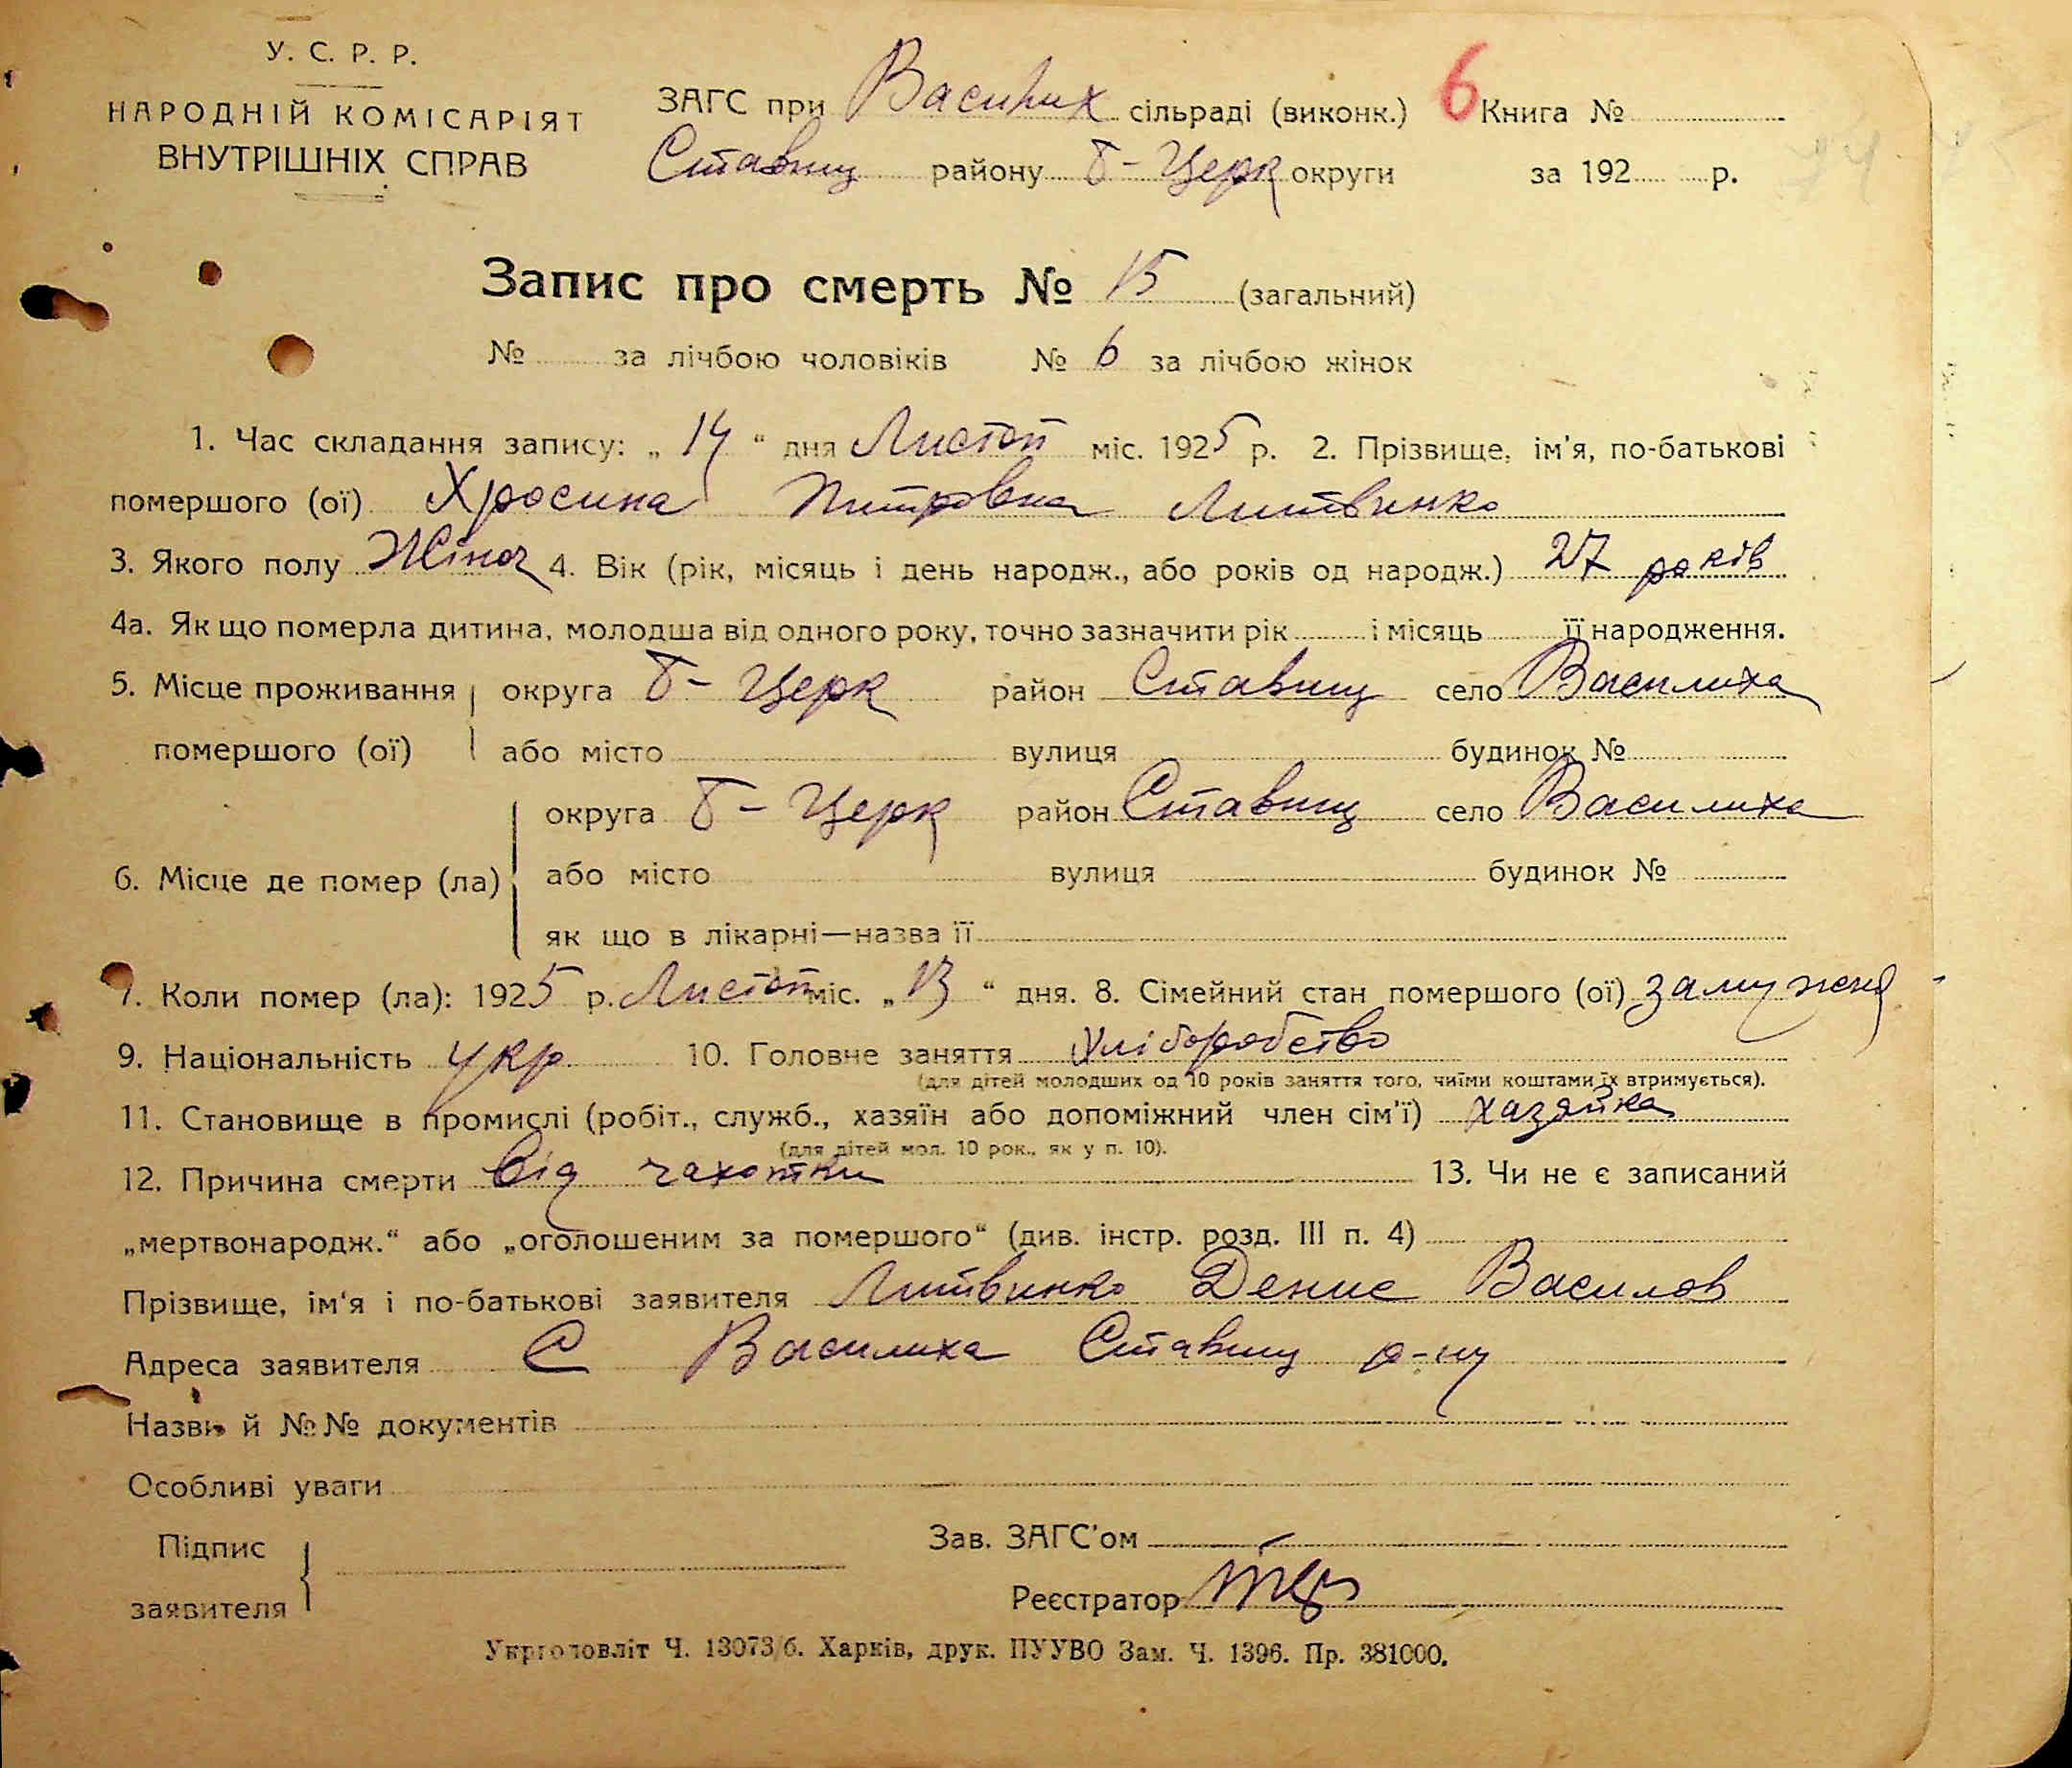 У. С. Р. Р.
НАРОДНІЙ КОМІСАРІЯТ
ВНУТРІШНІХ СПРАВ
ЗАГС при Василих сільраді (виконк.) 6 Книга №
Ставищ району Б-Церк округи за 192 р.
Запис про смерть № 15 (загальний)
№ за лічбою чоловіків № 6 за лічбою жінок
1. Час складання запису: „ 14 “ дня Листоп міс. 1925 р. 2. Прізвище, ім'я, по-батькові
помершого (ої) Хросина Питровна Литвинко
3. Якого полу Жіноч 4. Вік (рік, місяць і день народж., або років од народж.) 27 років
4а. Як що померла дитина, молодша від одного року, точно зазначити рік і місяць її народження.
5. Місце проживання помершого (ої) округа Б-Церк район Ставищ село Василиха
або місто вулиця будинок №
6. Місце де помер (ла) округа Б-Церк район Ставищ село Василиха
або місто вулиця будинок №
як що в лікарні—назва її
7. Коли помер (ла): 1925 р. Листоп міс. „ 13 “ дня. 8. Сімейний стан помершого (ої) замужня
9. Національність укр 10. Головне заняття Хліборобство
(для дітей молодших од 10 років заняття того, чиїми коштами їх втримується).
11. Становище в промислі (робіт., служб., хазяїн або допоміжний член сім'ї) хазяйка
(для дітей мол. 10 рок., як у п. 10).
12. Причина смерти від чахотки 13. Чи не є записаний
„мертвонародж.“ або „оголошеним за помершого“ (див. інстр. розд. III п. 4)
Прізвище, ім'я і по-батькові заявителя Литвинко Денис Василов
Адреса заявителя С Василиха Ставищ р-ну
Назви й №№ документів
Особливі уваги
Підпис заявителя
Зав. ЗАГС'ом
Реєстратор
Укрголовліт Ч. 13073/б. Харків, друк. ПУУВО Зам. Ч. 1396. Пр. 381000.